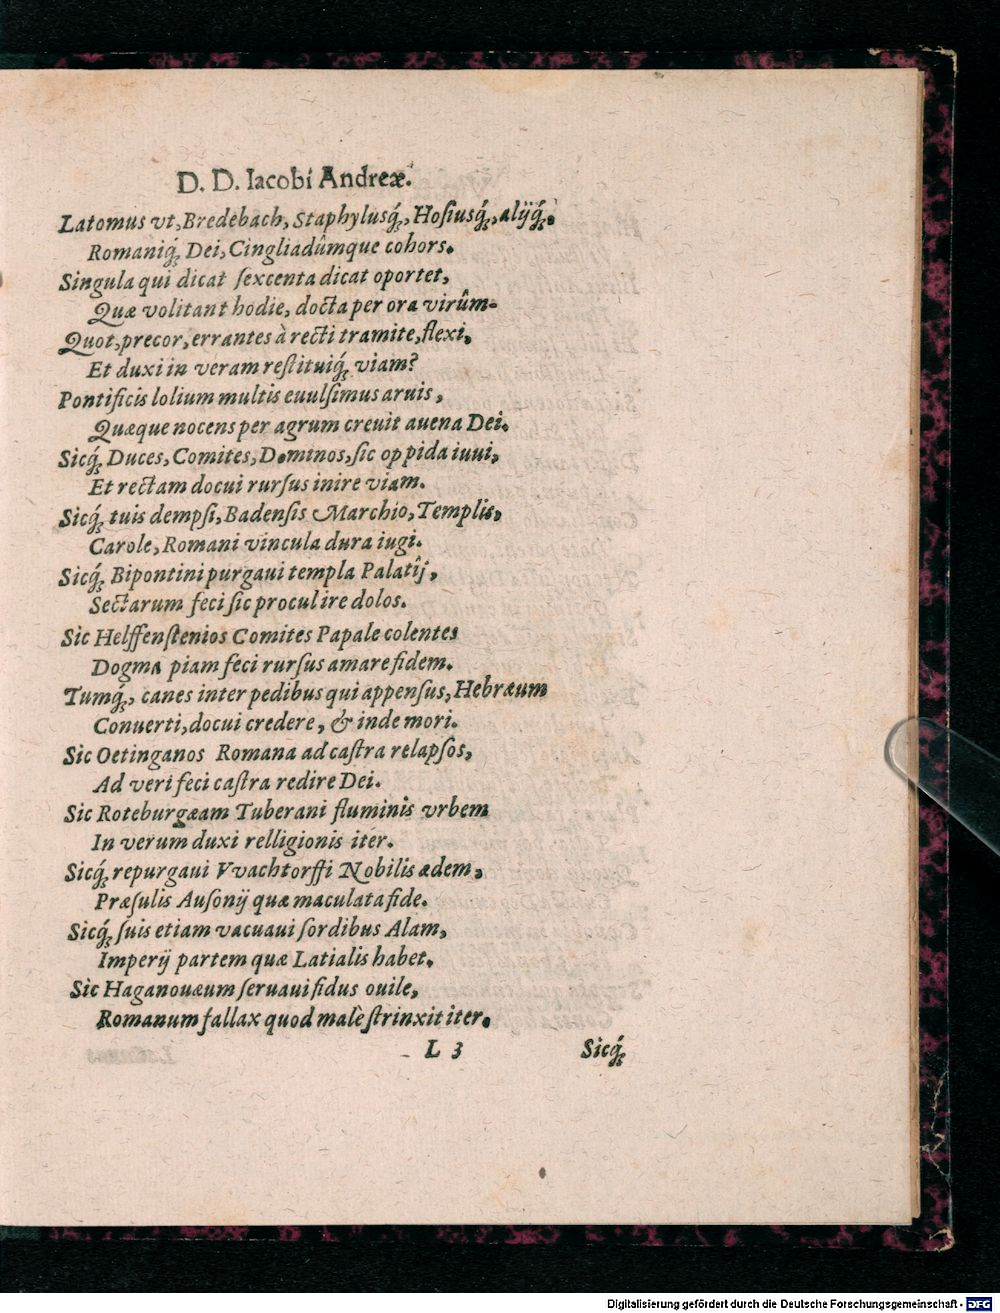 D. D. Iacobi Andreæ.
Latomus vt, Bredebach, Staphylusq́;, Hoſiusq́;, alijq́;,
Romaniq́; Dei, Cingliadûmque cohors.
Singula qui dicat ſexcenta dicat oportet,
Quæ volitant hodie, docta per ora virûm.
Quot, precor, errantes à recti tramite, flexi,
Et duxi in veram reſtituiq́; viam?
Pontificis lolium multis euulſimus aruis,
Quæque nocens per agrum creuit auena Dei.
Sicq́; Duces, Comites, Dominos, ſic oppida iuui,
Et rectam docui rurſus inire viam.
Sicq́; tuis dempſi, Badenſis Marchio, Templis,
Carole, Romani vincula dura iugi.
Sicq́; Bipontini purgaui templa Palatîj,
Sectarum feci ſic procul ire dolos.
Sic Helffenſtenios Comites Papale colentes
Dogma piam feci rurſus amare fidem.
Tumq́;, canes inter pedibus qui appenſus, Hebræum
Conuerti, docui credere, & inde mori.
Sic Oetinganos Romana ad caſtra relapſos,
Ad veri feci caſtra redire Dei.
Sic Roteburgæam Tuberani fluminis vrbem
In verum duxi relligionis iter.
Sicq́; repurgaui Vvachtorffi Nobilis ædem,
Præſulis Auſonij quæ maculata fide.
Sicq́; ſuis etiam vacuaui ſordibus Alam,
Imperij partem quæ Latialis habet.
Sic Haganouæum ſeruaui fidus ouile,
Romanum fallax quod malè ſtrinxit iter.
L 3 Sicq́;
Digitalisierung gefördert durch die Deutsche Forschungsgemeinschaft - DFG